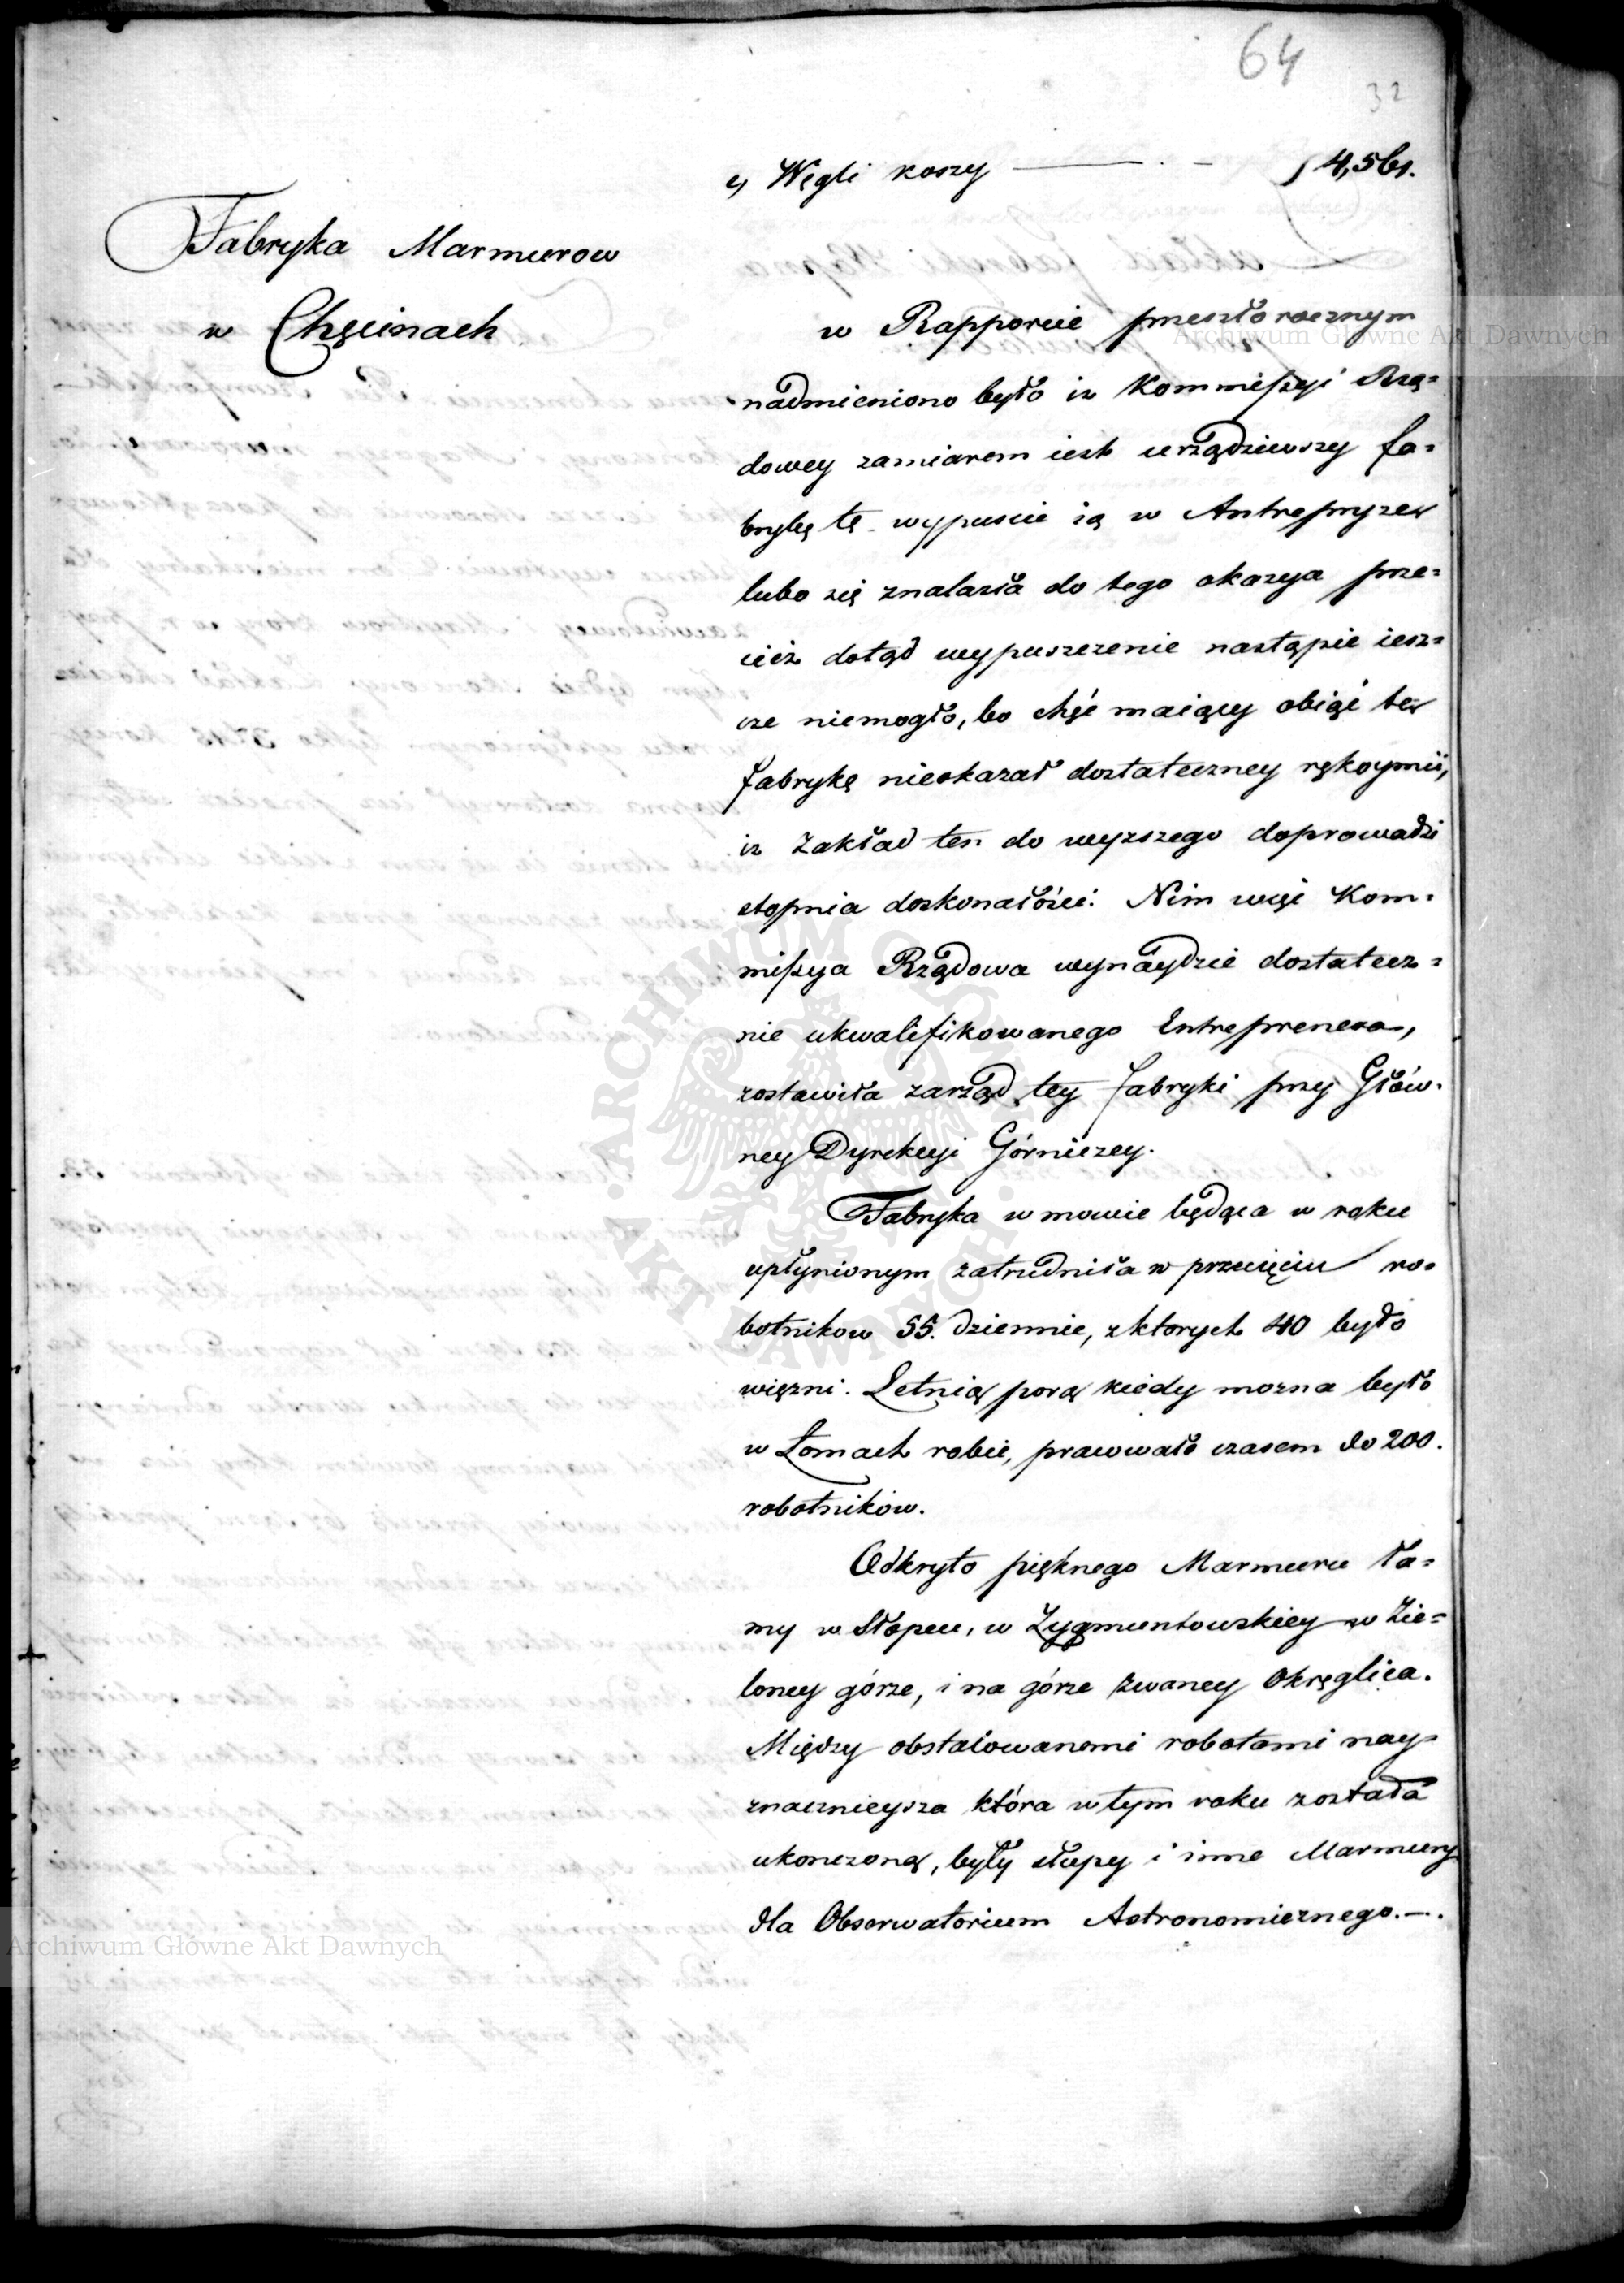 64
32
c, Węgli koszy — . — 14,561.
Fabryka Marmurow
w Chęcinach
w Rapporcie przeszłorocznym
nadmieniono było iż Kommissyi Rzą=
dowey zamiarem iest urządziwszy fa=
brykę tę wypuscic ią w Antrepryzę
lubo się znalazła do tego okazya prze=
cież dotąd wypuszczenie nastąpic iesz=
cze niemogło, bo chęć maiący obiąć tę
fabrykę nieokazał dostateczney rękoymii,
iż Zakład ten do wyzszego doprowadzi
stopnia doskonałości. Nim więc Kom=
missya Rządowa wynaydzie dostatecz=
nie ukwalifikowanego Entreprenera,
zostawiła zarząd tey fabryki przy Głów=
ney Dyrekcyi Górniczey.
Fabryka w mowie będąca w roku
upłynionym zatrudniła w przecięciu ro=
botnikow 55. dziennie, z ktorych 40 było
więzni. Letnią porą kiedy mozna było
w Łomach robic, pracowało czasem do 200.
robotników.
Odkryto pięknego Marmuru ła=
my w Słopcu, w Zygmuntowskiey w Zie=
loney górze, i na górze zwaney Okręglica.
Między obstalowanemi robotami nay=
znacznieysza która w tym roku została
ukonczoną, były słupy i inne Marmury
dla Obserwatorium Astronomicznego.—.
Archiwum Główne Akt Dawnych
Archiwum Główne Akt Dawnych
ARCHIWUM GŁÓWNE AKT DAWNYCH